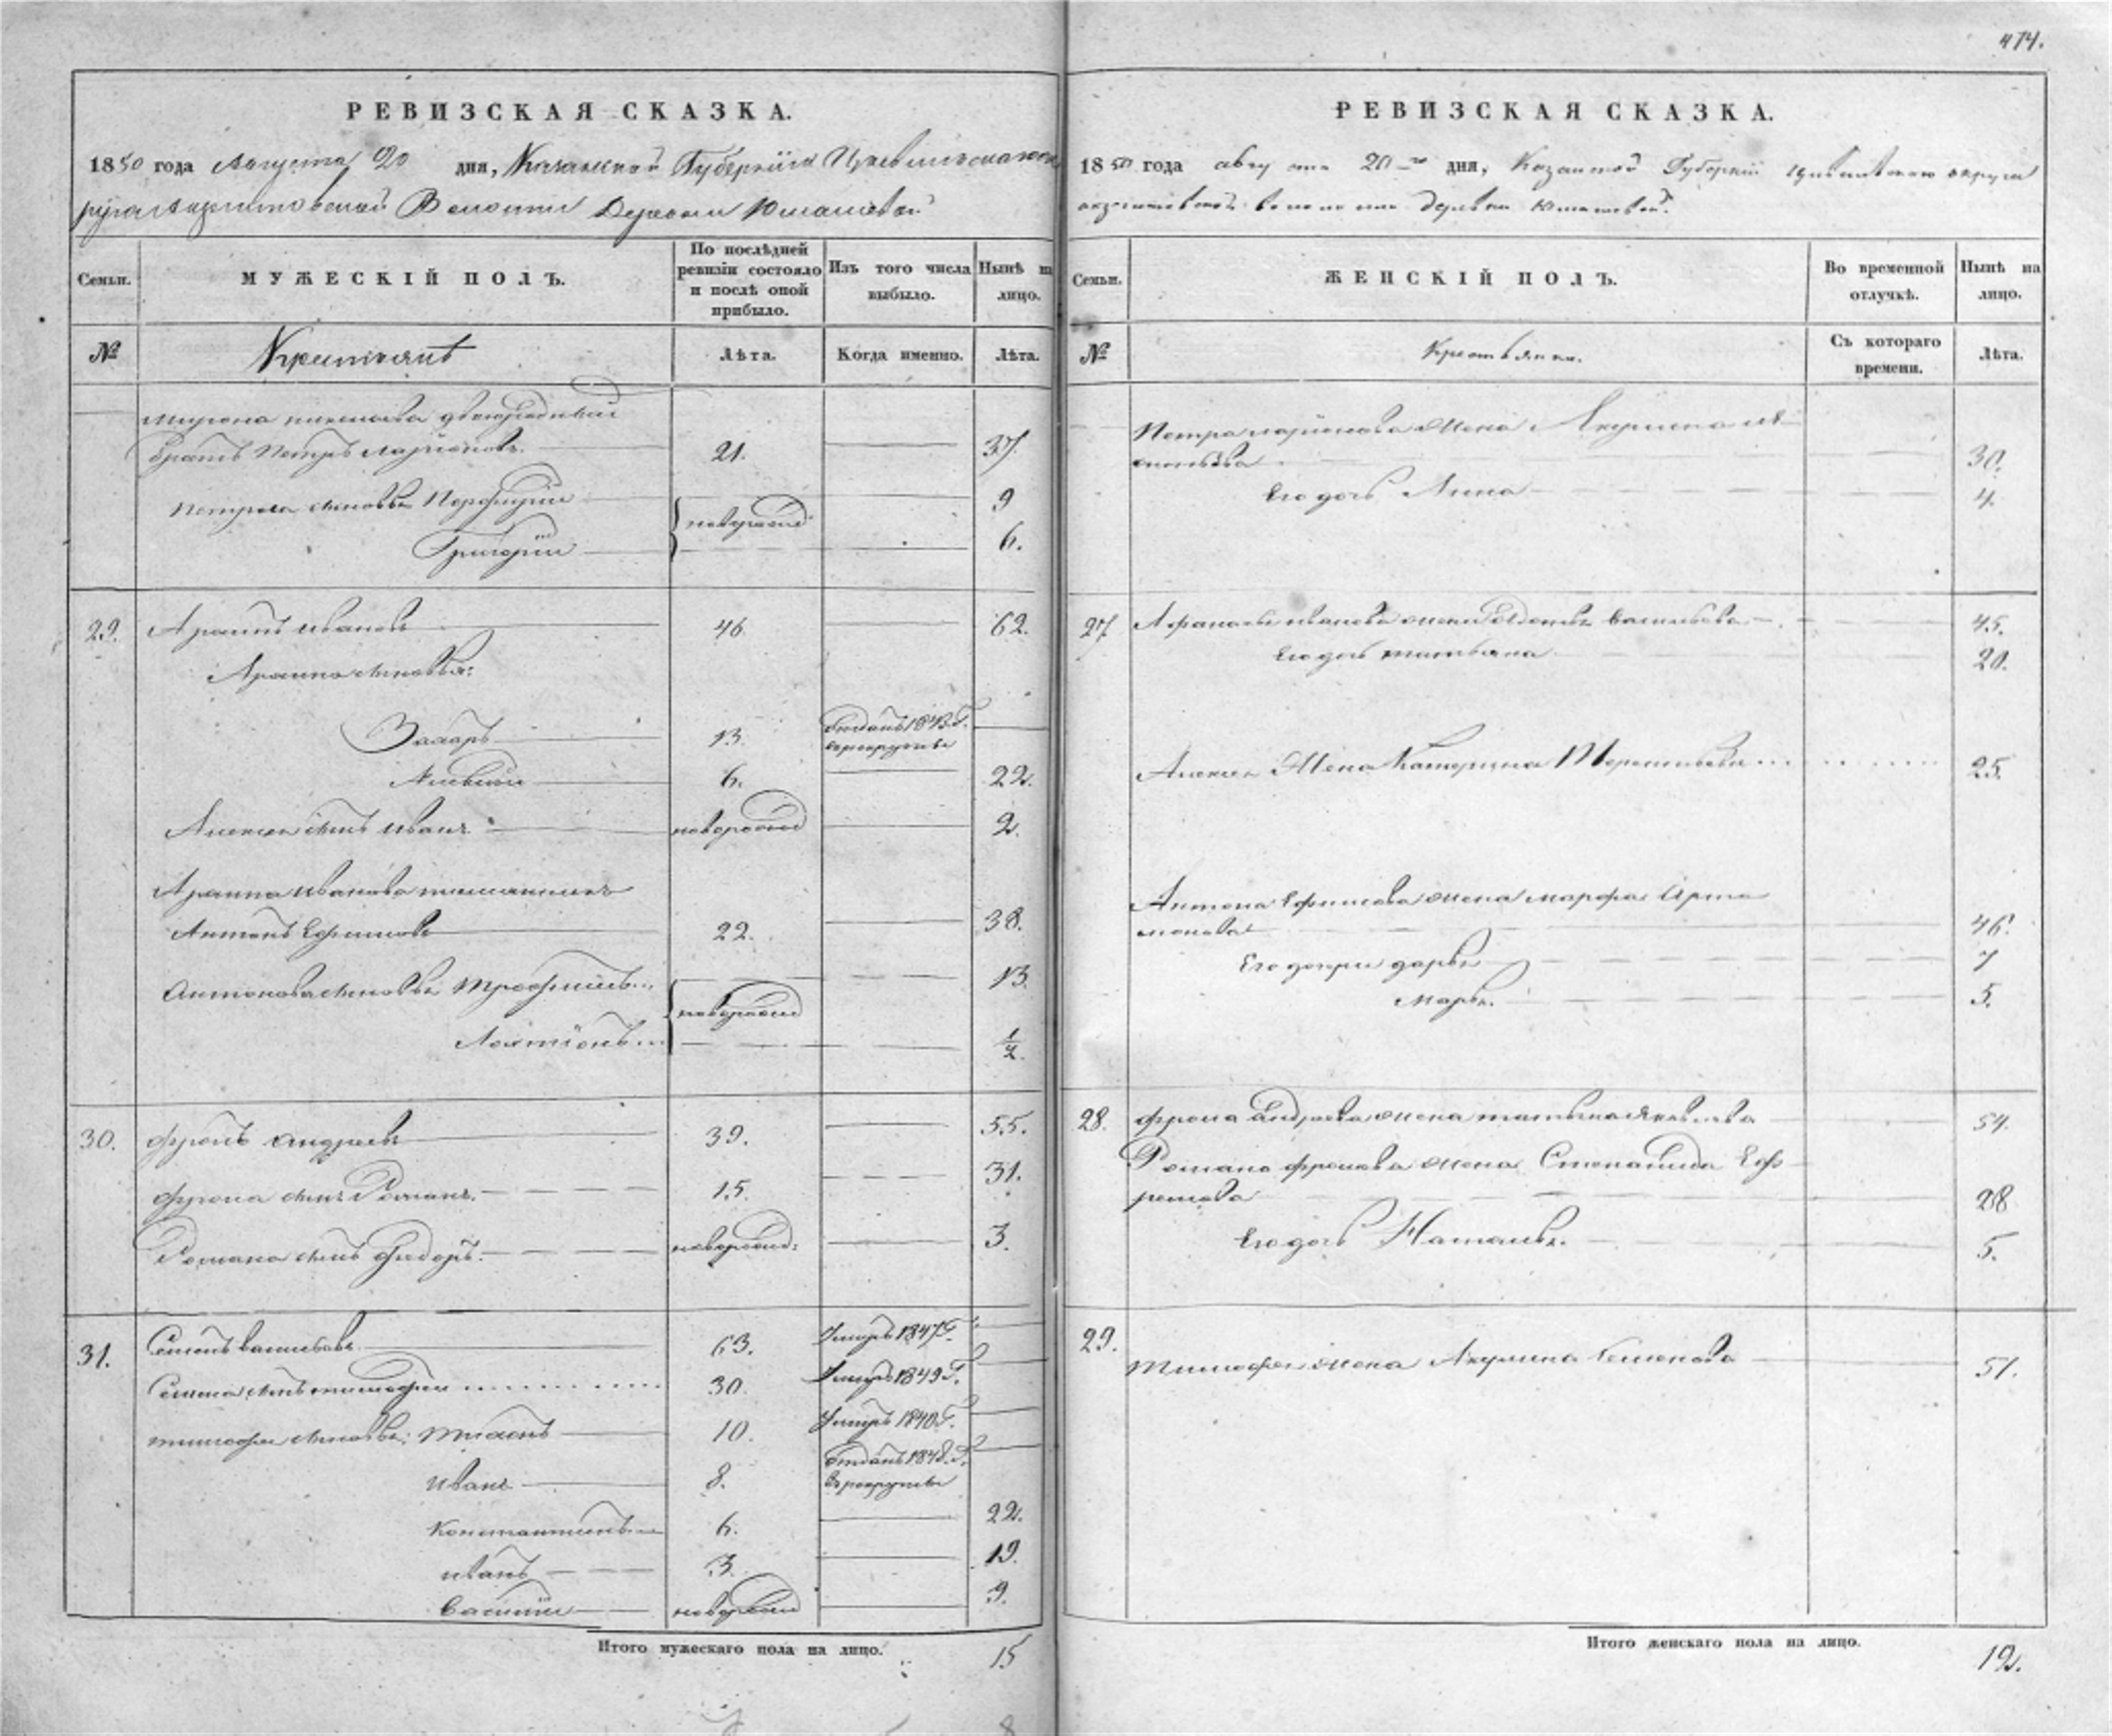 474.
РЕВИЗСКАЯ СКАЗКА.
1850 года Августа 20 дня, Казанской Губернiи Цивильскаго ок
руга Волости Деревни Юнашевой
Семьи. МУЖЕСКІЙ ПОЛЪ. По послѣдней ревизіи состояло и послѣ оной прибыло. Изъ того числа выбыло. Нынѣ на лицо.
№ Крестьянъ Лѣта. Когда именно. Лѣта.
Мирона двоюродный
братъ Петръ Ларiоновъ 21. 37.
Петра сыновья Порфирiй 9
новорожд
Григорiй 6.
29. Ивановъ 46 62.
сыновья:
Захаръ 13. отданъ 1843 Г. в рекруты
Алексей 6. 22.
Алексея сынъ Иванъ новорожд 2.
Иванова племянникъ
Антонъ Ефимовъ 22. 38.
Антонова сыновья Трофимъ 13
новорожд
Лектiонъ 1/2.
30. Фролъ Андреевъ 39. 55.
Фрола сынъ Романъ. 15. 31.
Романа сынъ Федоръ. новорожд: 3.
31. Семенъ Васильевъ 63. Умеръ 1847 Г.
Семена сынъ Тимофей 30. Умеръ 1849 Г.
Тимофея сыновья: Тихонъ 10. Умеръ 1840 Г.
Иванъ 8. Отданъ 1848 Г. в рекруты
Константинъ 6. 22.
Иванъ 3. 19.
Василiй новорожд 9.
Итого мужескаго пола на лицо. 15
РЕВИЗСКАЯ СКАЗКА.
1850 года августа 20 дня, Казанской Губернiи Цивильскаго округа
волости деревни Юнашевой.
Семьи. ЖЕНСКІЙ ПОЛЪ. Во временной отлучкѣ. Нынѣ на лицо.
№ Крестьянки. Съ котораго времени. Лѣта.
Петра Ларiонова жена Акулина
30.
Его дочь Анна 4.
27 Иванова жена Васильева 45.
Его дочь Татьяна 20.
Алексея жена Катерина Терентьева 25.
Антона Ефимова жена Марфа Арта
монова 46.
Его дочери Дарья 7
Марья. 5.
28. Фрола Андреева жена Татьяна Яковлева 54.
Романа Фролова жена Степанида Еф
ремова 28
Его дочь Наталья. 5.
29. Тимофея жена Акулина Семенова 51.
Итого женскаго пола на лицо. 12.